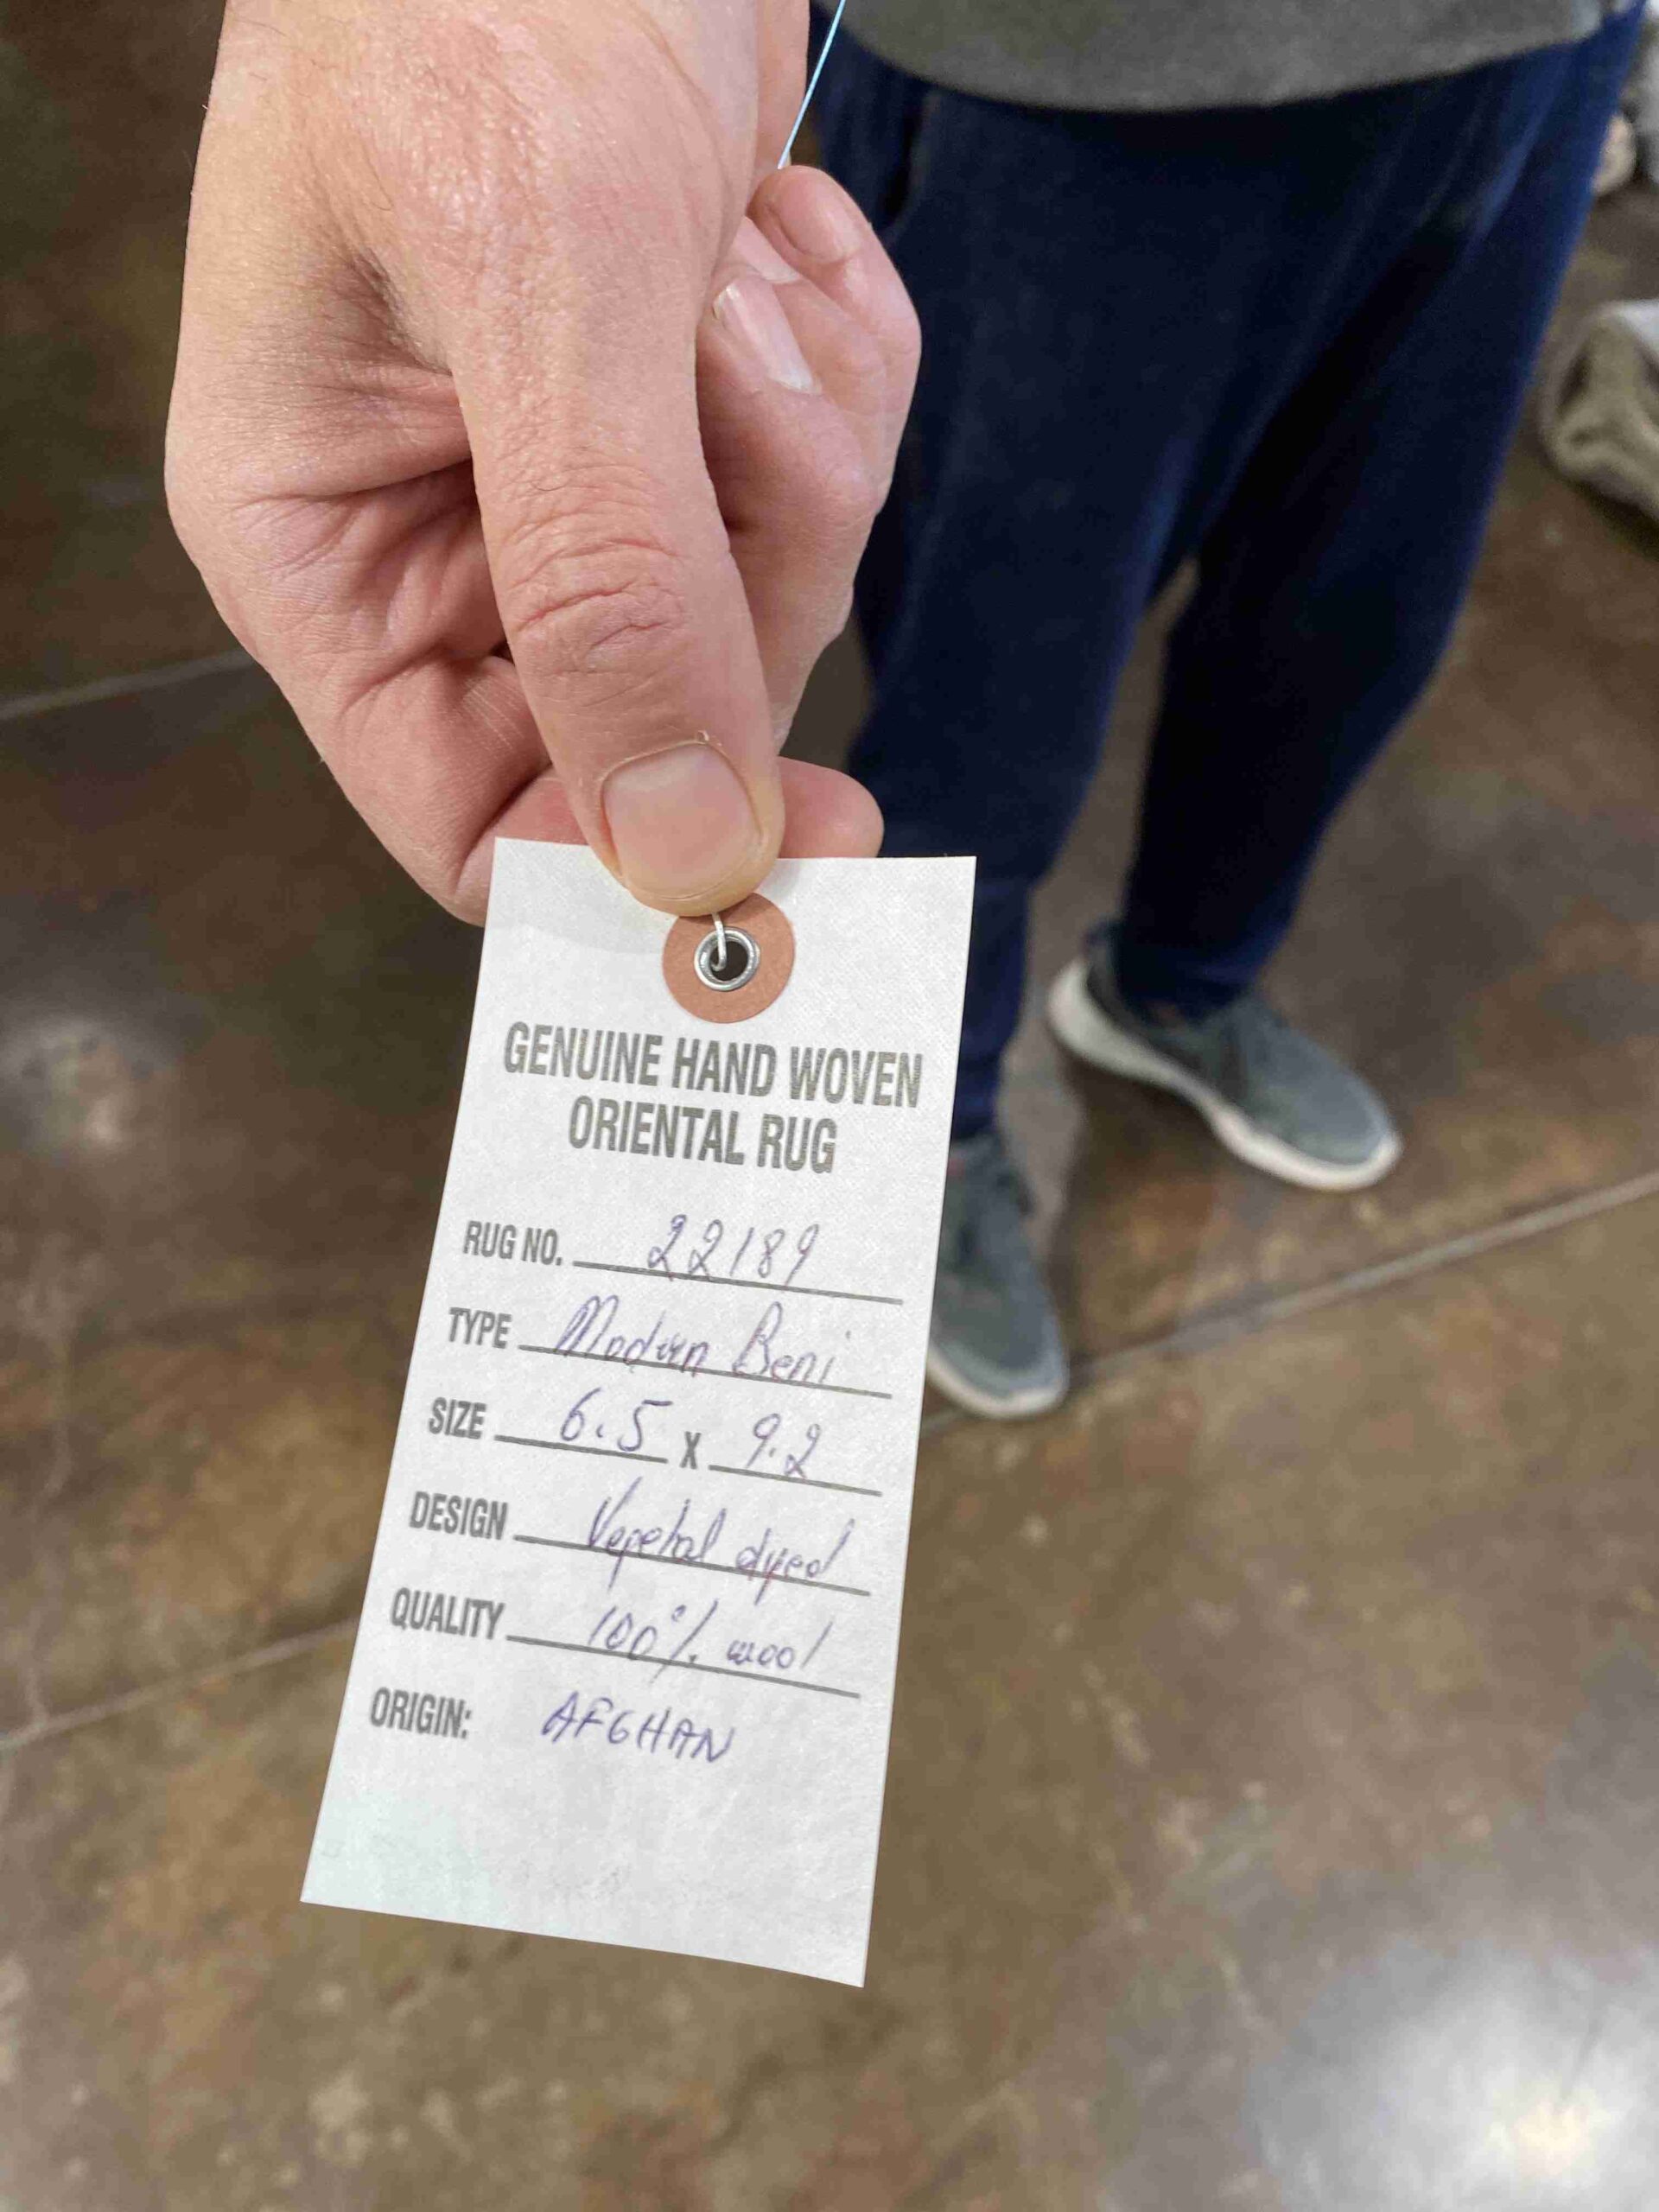 GENUINE HAND WOVEN
ORIENTAL RUG
RUG NO. 22189
TYPE Modern Beni
SIZE 6.5 X 9.2
DESIGN Vegetal dyed
QUALITY 100% wool
ORIGIN: AFGHAN